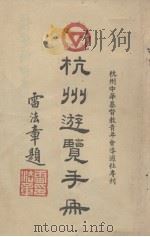 杭州中華基督教青年會導遊社專刊
杭州遊覽手冊
雷法章題